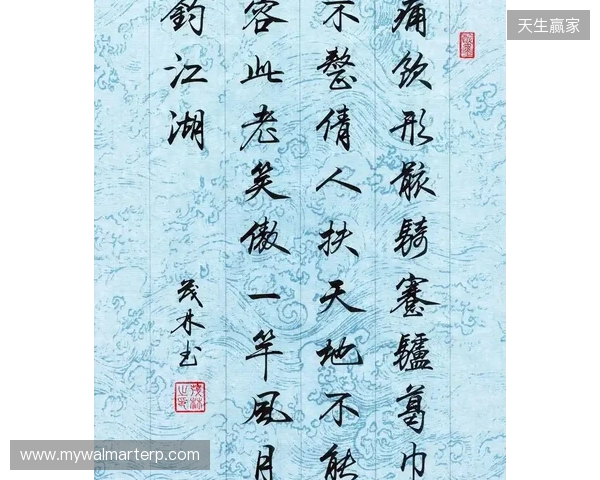 天生赢家
痛飲形骸騎蹇驢葛巾
不整倩人扶天地不能
容此老笑傲一竿風月
釣江湖
茂林书
www.mywalmarterp.com